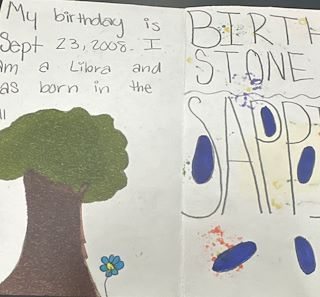 My birthday is
Sept 23, 2008. I
am a Libra and
as born in the
ll
BIRTH
STONE
SAPPI